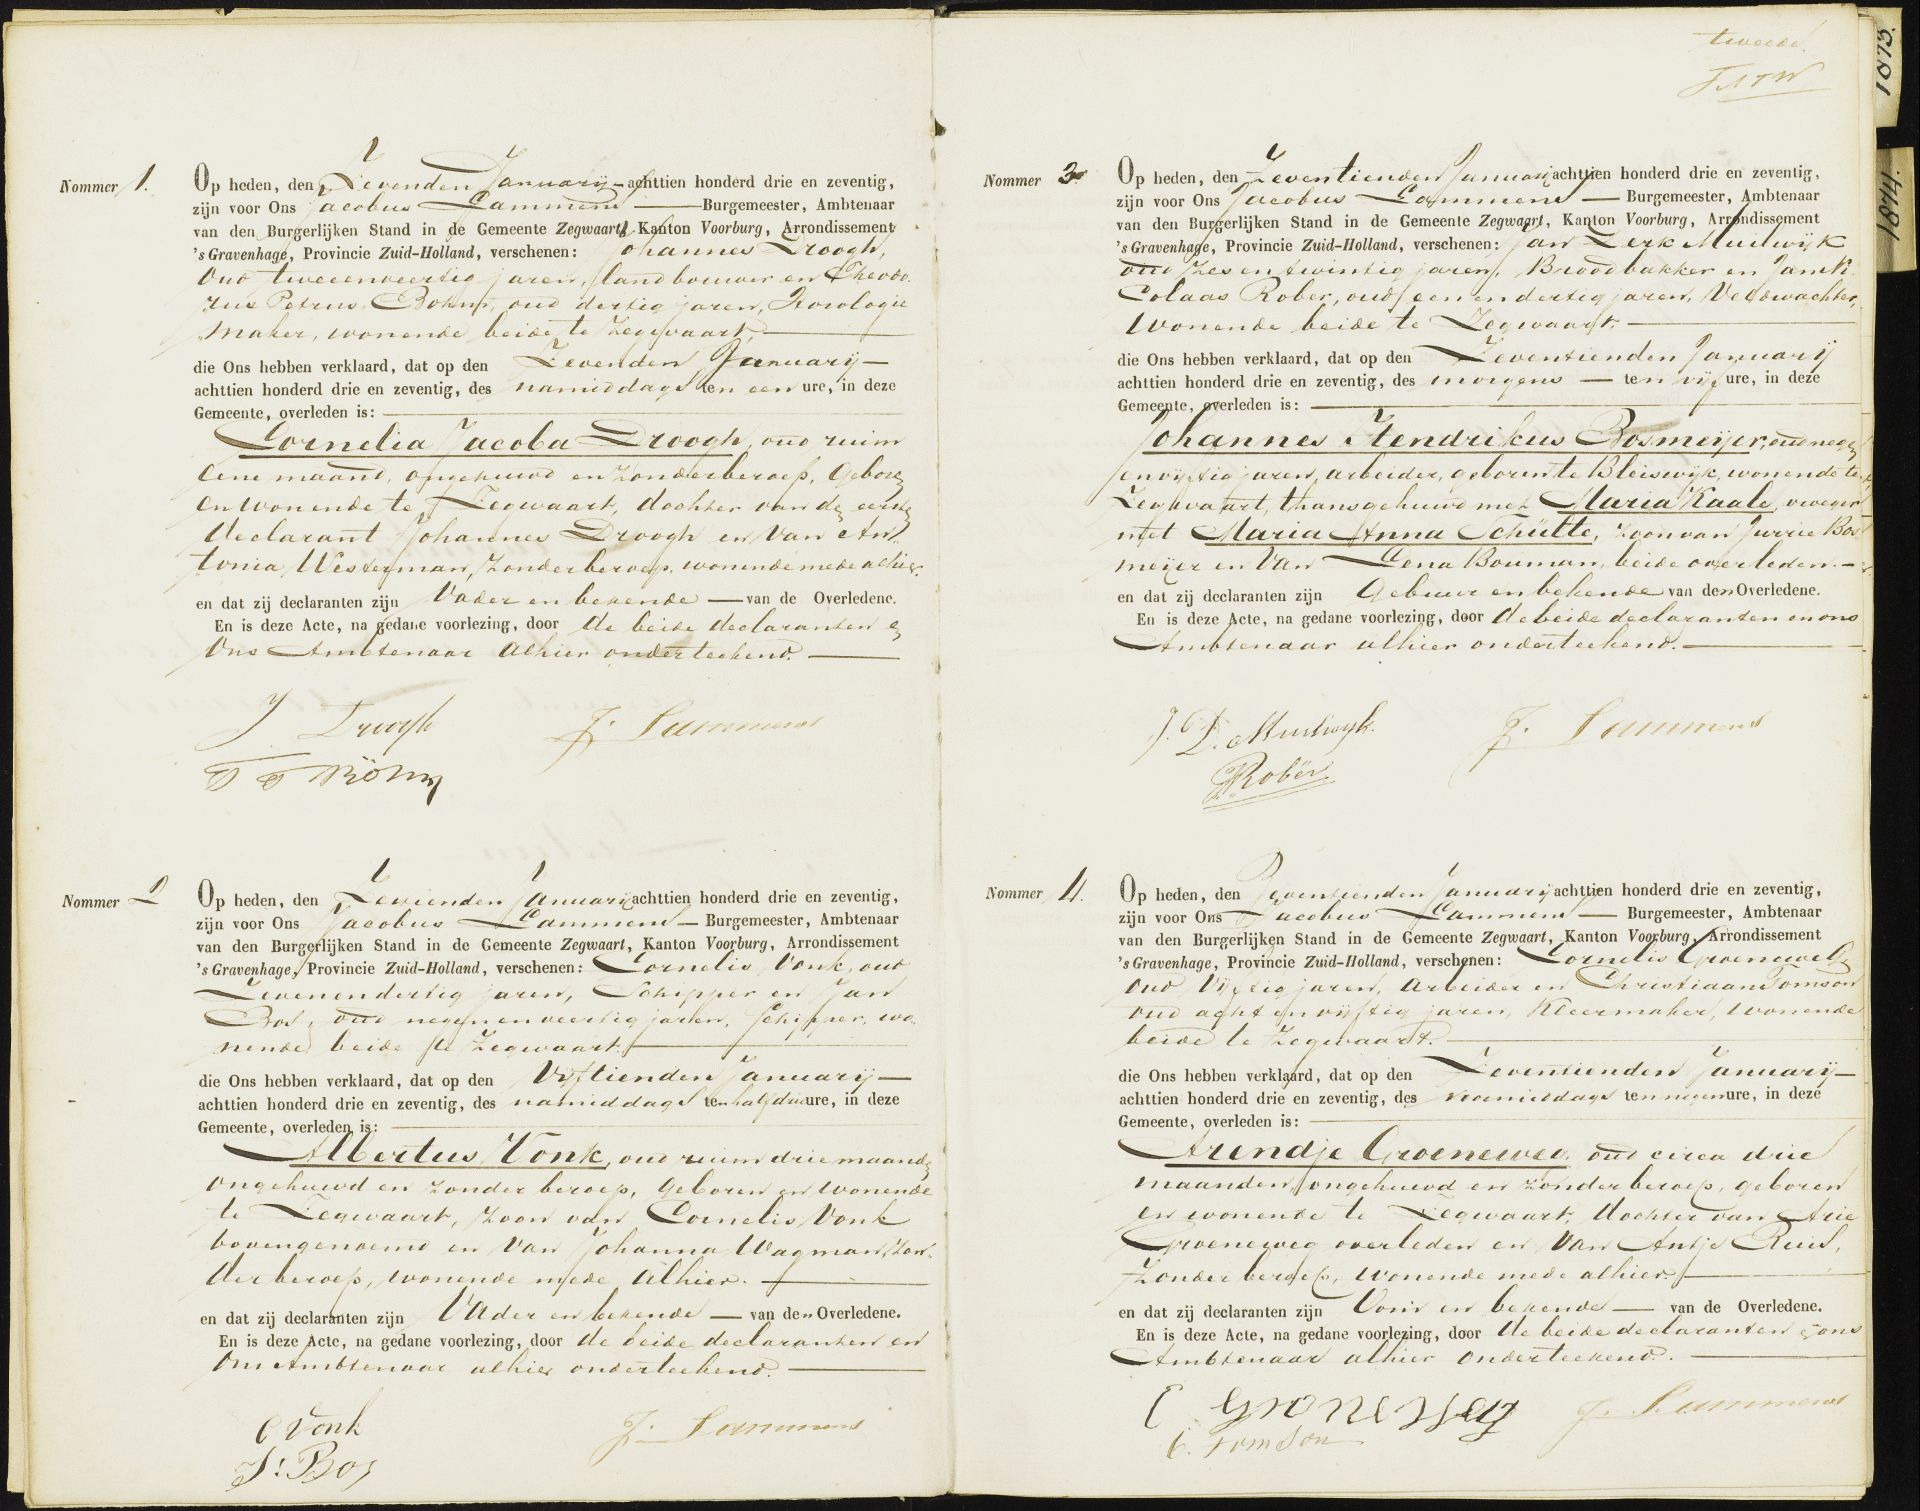 Nommer 1.
Op heden, den Zevenden Januarij achttien honderd drie en zeventig,
zijn voor Ons Jacobus Lammens — Burgemeester, Ambtenaar
van den Burgerlijken Stand in de Gemeente Zegwaart, Kanton Voorburg, Arrondissement
's Gravenhage, Provincie Zuid-Holland, verschenen: Johannes Droogh,
oud tweeenveertig jaren, landbouwer en Theodo
rus Petrus Böhm, oud dertig jaren, Horologie
maker, wonende beide te Zegwaart,
die Ons hebben verklaard, dat op den Zevenden Januarij —
achttien honderd drie en zeventig, des namiddags ten een ure, in deze
Gemeente, overleden is:
Cornelia Jacoba Droogh, oud ruim
eene maand, ongehuwd en zonder beroep, geboren
en wonende te Zegwaart, dochter van den eersten
declarant Johannes Droogh en van An
tonia Westerman, zonder beroep, wonende mede alhier.
en dat zij declaranten zijn Vader en bekende — van de Overledene.
En is deze Acte, na gedane voorlezing, door de beide declaranten en
Ons Ambtenaar alhier onderteekend. —
J Droogh J. Lammens
T P Böhm
Nommer 2
Op heden, den Zestienden Januarij achttien honderd drie en zeventig,
zijn voor Ons Jacobus Lammens — Burgemeester, Ambtenaar
van den Burgerlijken Stand in de Gemeente Zegwaart, Kanton Voorburg, Arrondissement
's Gravenhage, Provincie Zuid-Holland, verschenen: Cornelis Vonk, oud
Zevenendertig jaren, Schipper en Jan
Bos, oud negenenveertig jaren, Schipper, wo
nende beide te Zegwaart.
die Ons hebben verklaard, dat op den Vijftienden Januarij —
achttien honderd drie en zeventig, des namiddags ten half drie ure, in deze
Gemeente, overleden is:
Albertus Vonk, oud ruim drie maanden
ongehuwd en zonder beroep, geboren en wonende
te Zegwaart, zoon van Cornelis Vonk
bovengenoemd en van Johanna Wagman, zon
der beroep, wonende mede alhier. —
en dat zij declaranten zijn Vader en bekende — van den Overledene.
En is deze Acte, na gedane voorlezing, door de beide declaranten en
Ons Ambtenaar alhier onderteekend. —
C Vonk J. Lammens
J: Bos
tweede.
1873
1844
Nommer 3
Op heden, den Zeventienden Januarij achttien honderd drie en zeventig,
zijn voor Ons Jacobus Lammens — Burgemeester, Ambtenaar
van den Burgerlijken Stand in de Gemeente Zegwaart, Kanton Voorburg, Arrondissement
's Gravenhage, Provincie Zuid-Holland, verschenen: Jan Muilwijk
oud zes en twintig jaren, Broodbakker en Jan Ni
colaas Rober, oud een en dertig jaren, Veldwachter,
wonende beide te Zegwaart. —
die Ons hebben verklaard, dat op den Zeventienden Januarij
achttien honderd drie en zeventig, des morgens — ten vijf ure, in deze
Gemeente, overleden is:
Johannes Hendrikus Bosmeijer, oud negen
en vijftig jaren, arbeider, geboren te Bleiswijk, wonende te
Zegwaart, thans gehuwd met Maria Kaale, vroeger
met Maria Anna Schütte, zoon van Jurrie Bos
meijer en van Lena Bouman, beide overleden. —
en dat zij declaranten zijn Gebuur en bekende van den Overledene.
En is deze Acte, na gedane voorlezing, door de beide declaranten en ons
Ambtenaar alhier onderteekend. —
J. D. Muilwyk. J. Lammens
Robër.
Nommer 4.
Op heden, den Zeventienden Januarij achttien honderd drie en zeventig,
zijn voor Ons Jacobus Lammens — Burgemeester, Ambtenaar
van den Burgerlijken Stand in de Gemeente Zegwaart, Kanton Voorburg, Arrondissement
's Gravenhage, Provincie Zuid-Holland, verschenen: Cornelis Groeneweg
oud Vijftig jaren, arbeider en Christiaan Tomson
oud acht en vijftig jaren, Kleermaker, wonende
beide te Zegwaart. —
die Ons hebben verklaard, dat op den Zeventienden Januarij —
achttien honderd drie en zeventig, des voormiddags ten negen ure, in deze
Gemeente, overleden is:
Arendje Groeneweg, oud circa drie
maanden, ongehuwd en zonder beroep, geboren
en wonende te Zegwaart, dochter van Arie
Groeneweg overleden en van Antje
zonder beroep, wonende mede alhier. —
en dat zij declaranten zijn Oom en bekende — van de Overledene.
En is deze Acte, na gedane voorlezing, door de beide declaranten en ons
Ambtenaar alhier onderteekend. —
C Groneweg J. Lammens
C. Tomson